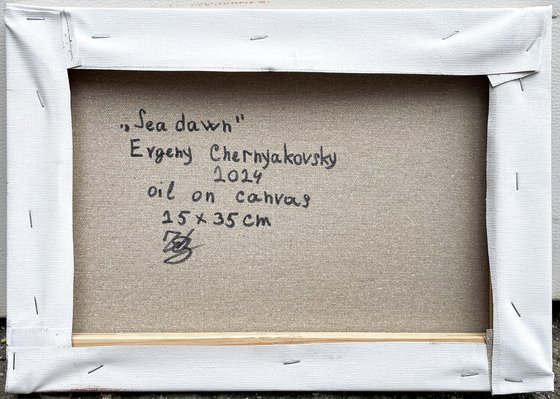 „Sea dawn"
Evgeny Chernyakovsky
2024
oil on canvas
25 x 35 cm